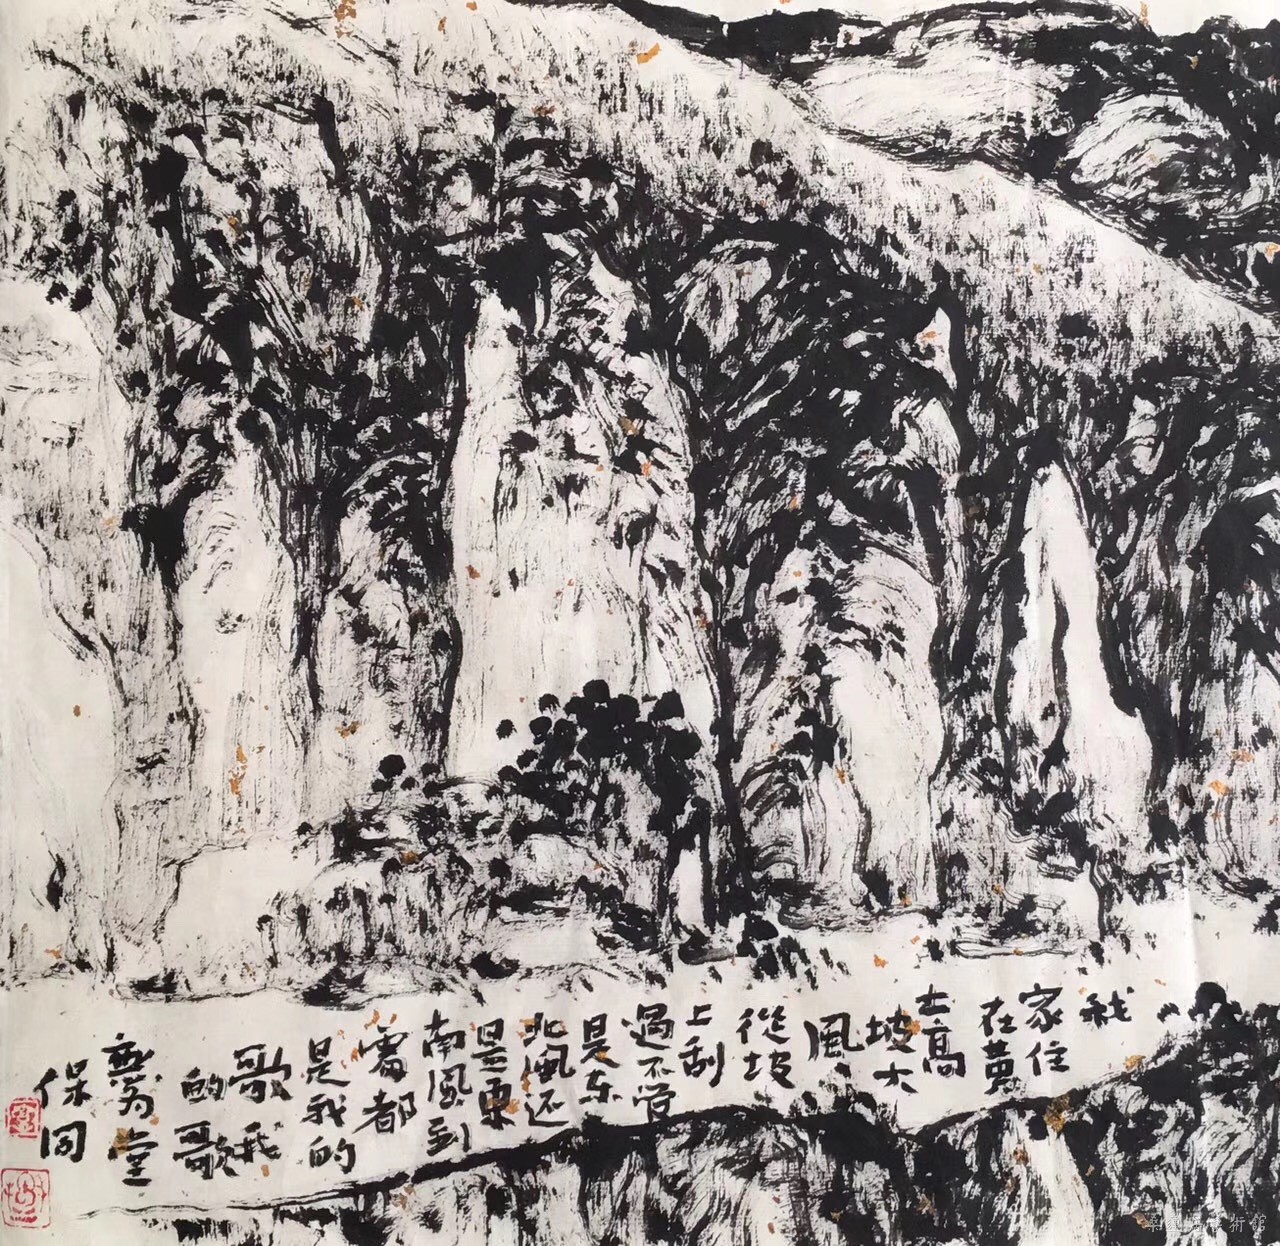 我
家住
在黄
土高
坡大
風
從坡
上刮
過不管
是东
北風还
是東
南風到
處都
是我的
歌我
的歌
無为堂
保同